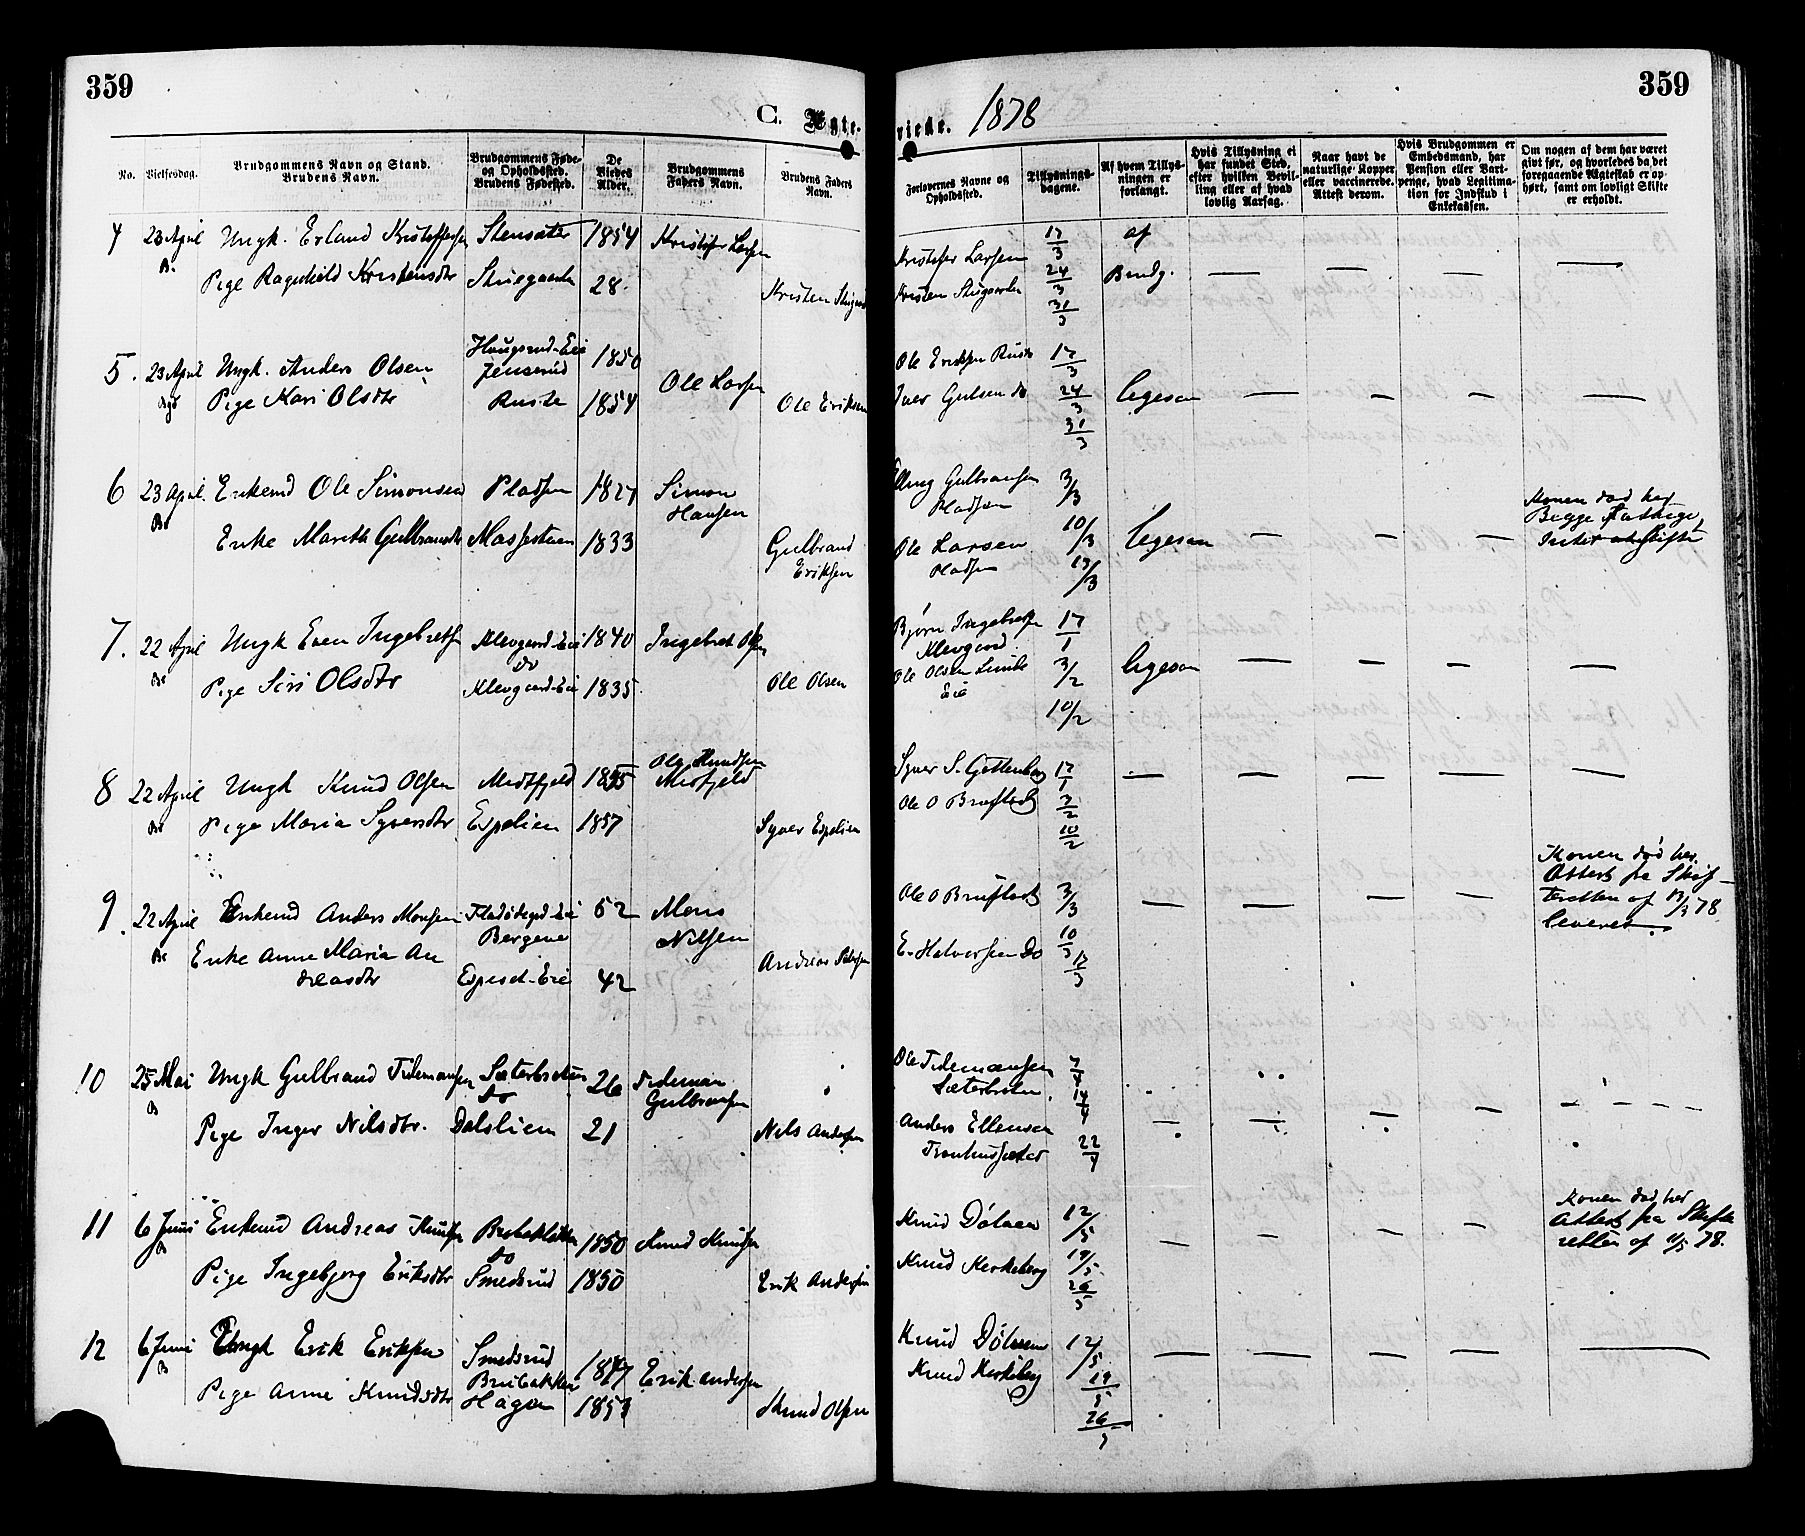 359
359
C. Ægte-
viede. 1878
No.
Vielsesdag.
Brudgommens Navn og Stand.
Brudens Navn.
Brudgommens Føde-
og Opholdssted.
Brudens Fødested.
De
Viedes
Alder.
Brudgommens
Faders Navn.
Brudens Faders
Navn.
Forlovernes Navne og
Opholdssted.
Tillysnings-
dagene.
Af hvem Tillys-
ningen er
forlangt.
Hvis Tillysning ei
har fundet Sted,
efter hvilken Bevil-
ling eller af hvad
lovlig Aarsag.
Naar havt de
naturlige Kopper
eller vaccinerede.
Attest derom.
Hvis Brudgommen er
Embedsmand, har
Pension eller Vart-
penge, hvad Legitima-
tion for Indskud i
Enkekassen.
Om nogen af dem har været
givt før, og hvorledes da det
foregaaende Ægteskab er op-
hørt, samt om lovligt Skifte
er erholdt.
4 23 April Ungk. Erland Kristoffersen Stensæter 1854 Kristofer Larsen
Kristofer Larsen 17/3 af
Br. Pige Ragnhild Kristensdtr Stuegaarden 28 Kristen Stugaard
Kristen Stugaarden 24/3 Brudg. — — — —
31/3
5. 23 April Ungk. Anders Olsen Haugsrud-Eie 1850 Ole Larsen
Jenserud
Ole Eriksen Ruste 17/3
Pige Kari Olsdtr Ruste 1854 Ole Eriksen
Iver Gulsen do 24/3 Ligesaa — — — —
31/3
6 23 April. Enkemd Ole Simonsen Pladsen 1827 Simon
Hansen
Gulbransen 3/3
Pladsen
Konen død her
Begge fattige,
Intet at skifte
Br Enke Marith Gulbransdtr 1833 Gulbrand
Eriksen
Ole Larsen 10/3 Ligesaa — — — —
Pladsen 17/3
7. 22 April Ungk Even Ingebretsen Klevgaard-Eie 1840 Ingebret Olsen
do
Bjørn Ingebretsen 17/1
Klevgaard
Br Pige Siri Olsdtr Klevgaard-Eie 1835 Ole Olsen
Ole Olsen Linde 3/2 Ligesaa — — — —
Eie
10/2
8 22 April Ungk Knud Olsen Midtfjeld 1855 Ole Knudsen
Midtfjeld
Syver S. Gottenborg 17/1 — — — — —
Br Pige Maria Syversdtr Espelien 1857 Syver Espelien
Ole O Bruflodt 3/2
10/2
9. 22 April Enkemd Anders Monsen Bergene 52 Mons
Nilsen
Ole O Bruflodt 3/3 — — — —
Konen død her.
Attest fra Skif-
teretten af 13/3 78
leveret.
Br Enke Anne Maria An
dreasdtr Espeset-Eie 42
E. Halvorsen Do 10/3
17/3
10 25 Mai Ungk Gulbrand Tidemansen Sæterbraaten 26 Tideman
do Gulbransen
Ole Tidemansen 7/4
Sæterbraaten 14/4
B Pige Inger Nilsdtr. Dalslien 21 Nils Andersen
Anders Ellensen 22/4 — — — — —
11 6 Juni Enkemd Andreas Knutsen Brubakken 1850 Knud Knutsen
do
Knud Dølven 12/5 — — — —
Konen død her
Attest fra Skifte
retten af 11/5 78.
B Pige Ingebjorg Eriksdtr Smedsrud 1850 Erik Andersen
Knud Kirkeberg 19/5
26/5
12 6 Juni Ungk Erik Eriksen Smedsrud 1847 Erik Andersen
Brubakken
Knud Dølven 12/5 — — — — —
B Pige Anne Knudsdtr Hagen 1853 Knud Olsen
Knud Kirkeberg 19/5
26/5